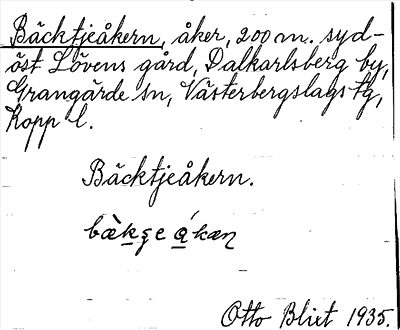 Bäcktjeåkern, åker, 200 m. syd-
öst Lövens gård, Dalkarlsberg by,
Grangärde sn, Västerbergslags tg,
Kopp l.
Bäcktjeåkern.
Otto Blixt 1935.